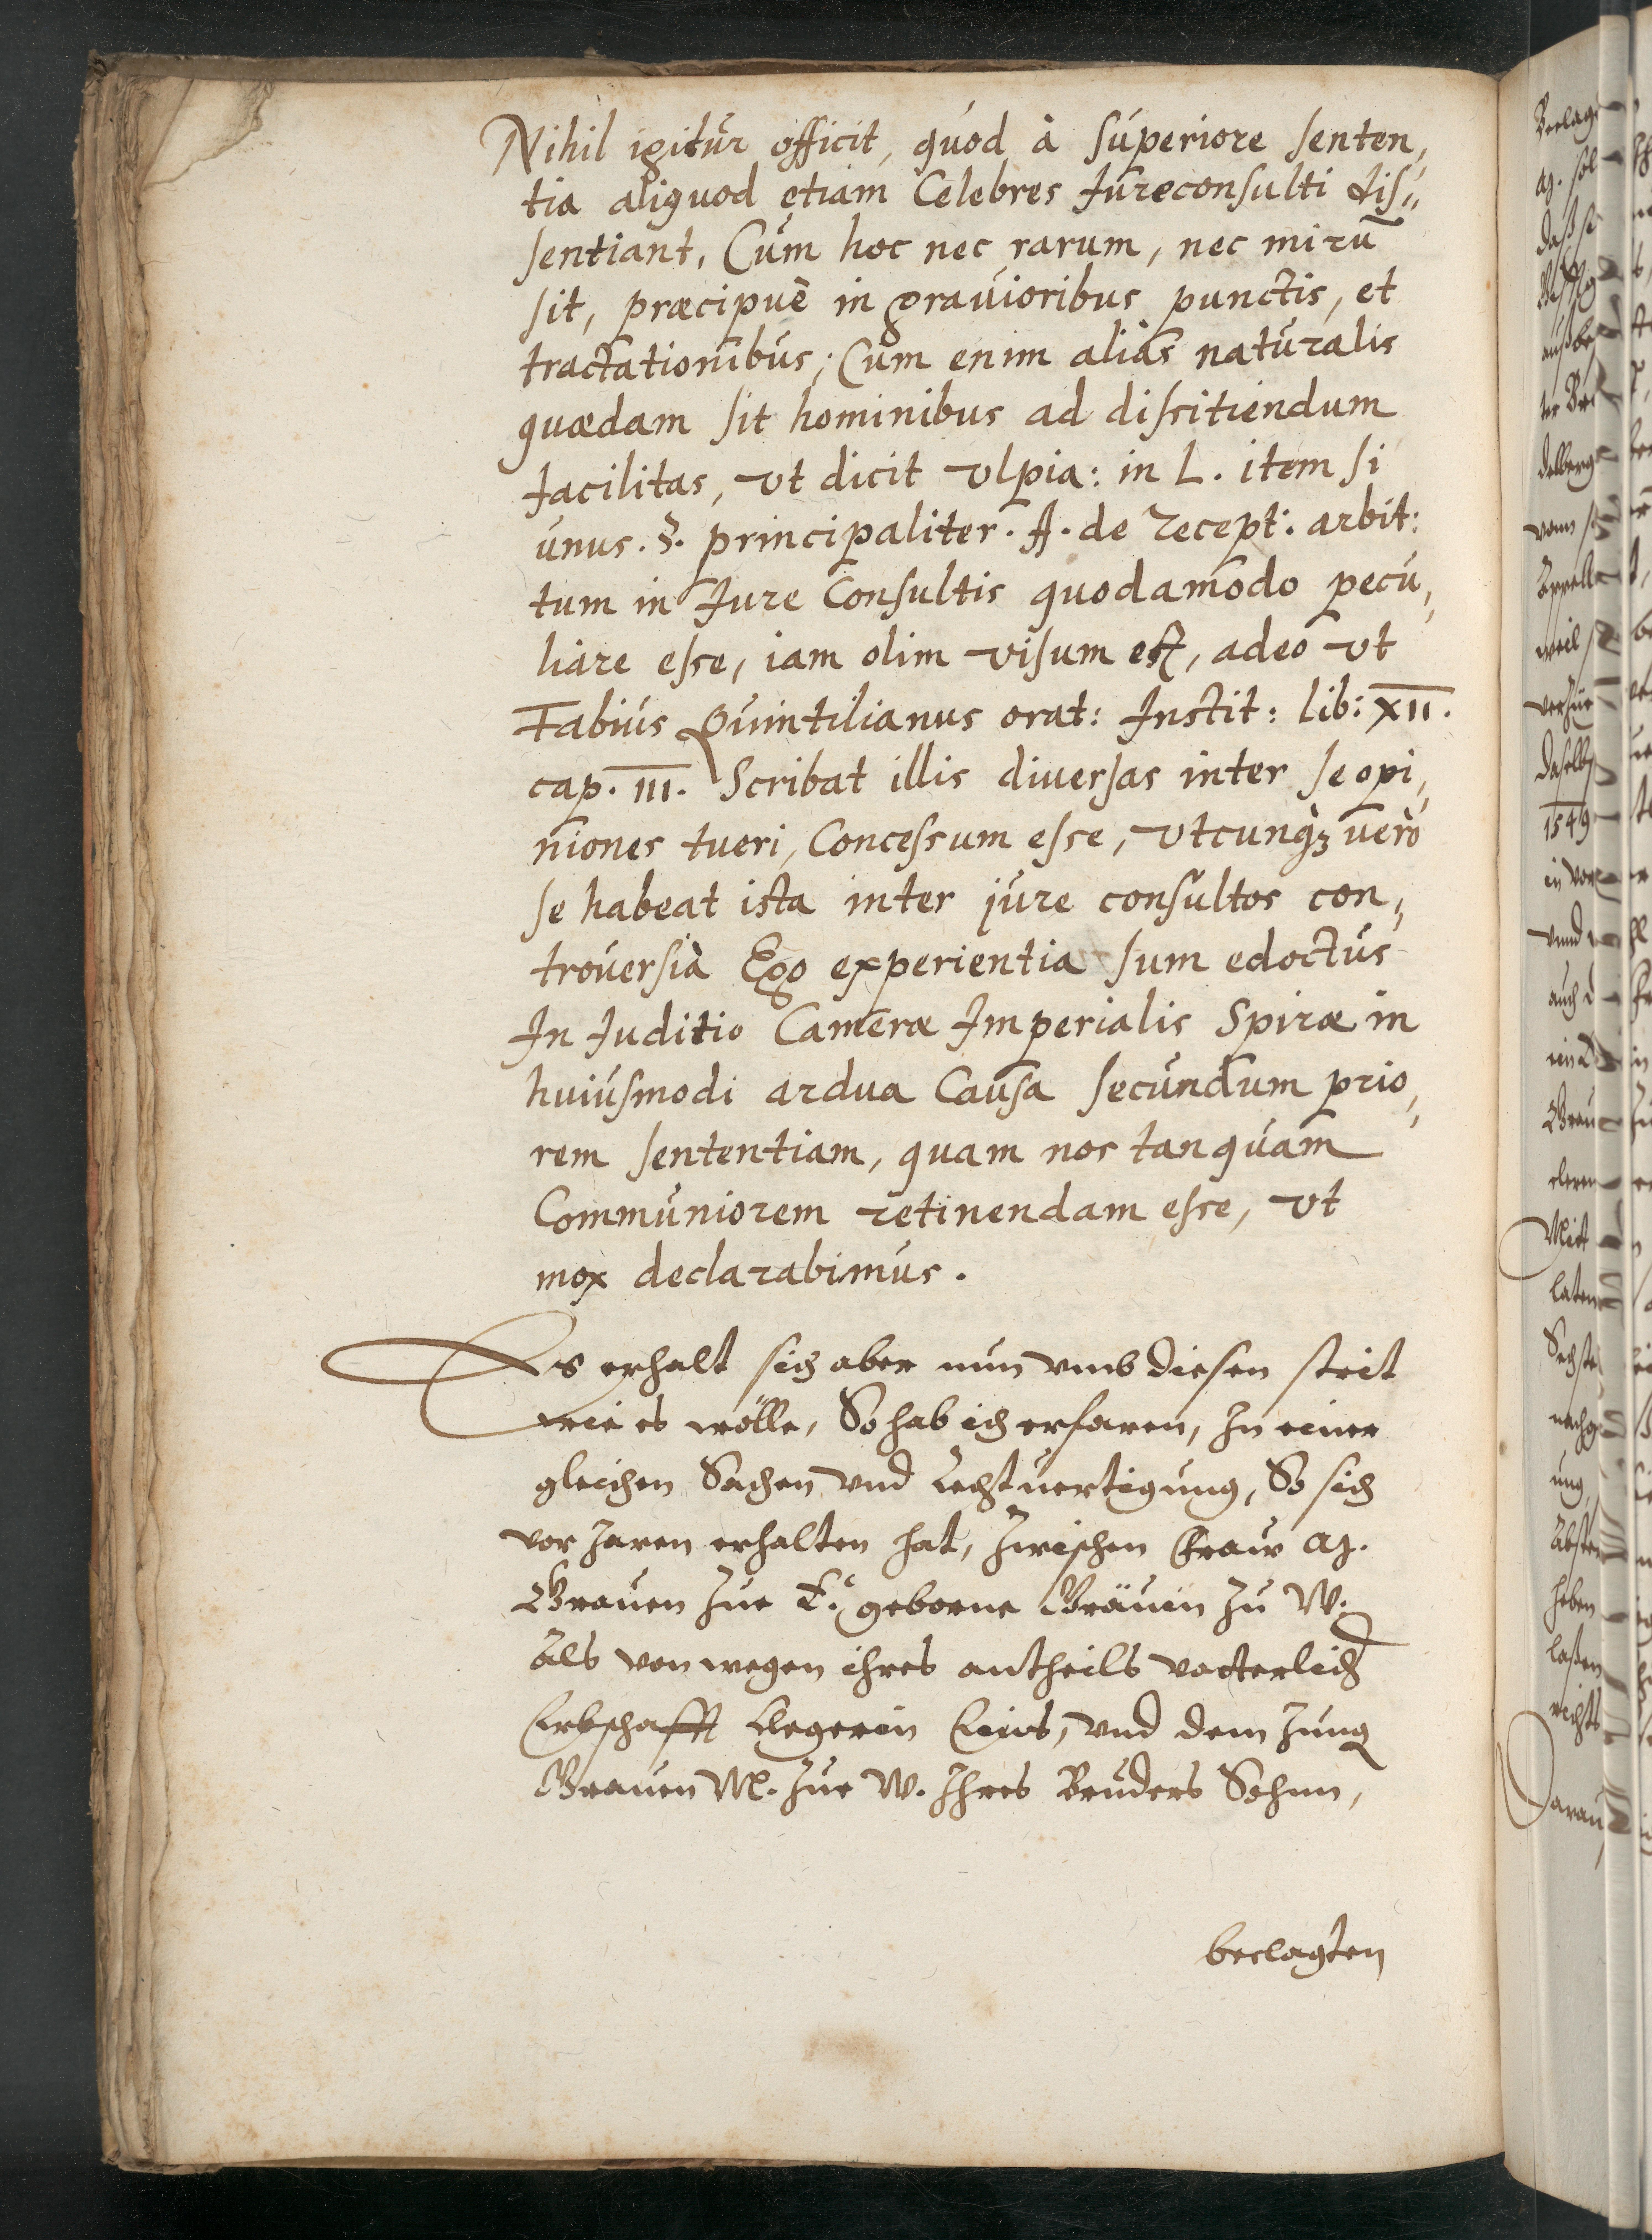 Nihil igitur officit, quod à superiore senten,
tia aliquod etiam Celebres Iureconsulti dis,,
sentiant, Cum hoc nec rarum, nec mirũ
sit, præcipuè in gravioribus punctis, et
tractationibus; Cum enim aliàs naturalis
quædam sit hominibus ad dissitiendum
facilitas, vt dicit vlpia: in L. item si
unus. §. principaliter. ff. de recept: arbit:
tum in Iure Consultis quodamodo pecu,
liare esse, iam olim visum est, adeò vt
Fabius Quintilianus orat: Instit: lib: XII.
cap. III. Scribat illis diversas inter se opi,
niones tueri, Concessum esse, vtcunqȝ verò
se habeat ista inter jure consultos con,
troversià Ego experientia sum edoctus
In Iuditio Cameræ Imperialis Spiræ in
huiusmodi ardua Causa secundum prio,
rem sententiam, quam nos tanquam
Communiorem retinendam esse, vt
mox declarabimus.
Es erhalt sich aber nun vmb diesen streit
wie es wölle, So hab ich erfaren, In einer
gleichen Sachen vnd Rechtuertigung, So sich
vor Jaren erhalten hat, zwischen Fraw
Grauen zue geborne Gräuin zu W.
Als von wegen ihres antheils vätterlich
Erbschafft Clegerin Eins, vnd dem Jung
Grauen W. zue W. Ihres Bruders Sohnn,
beclagten
Beclag
daß
in
vnnd
auch
Mit
laten
Sechste
heben
laßen
Darau
1549